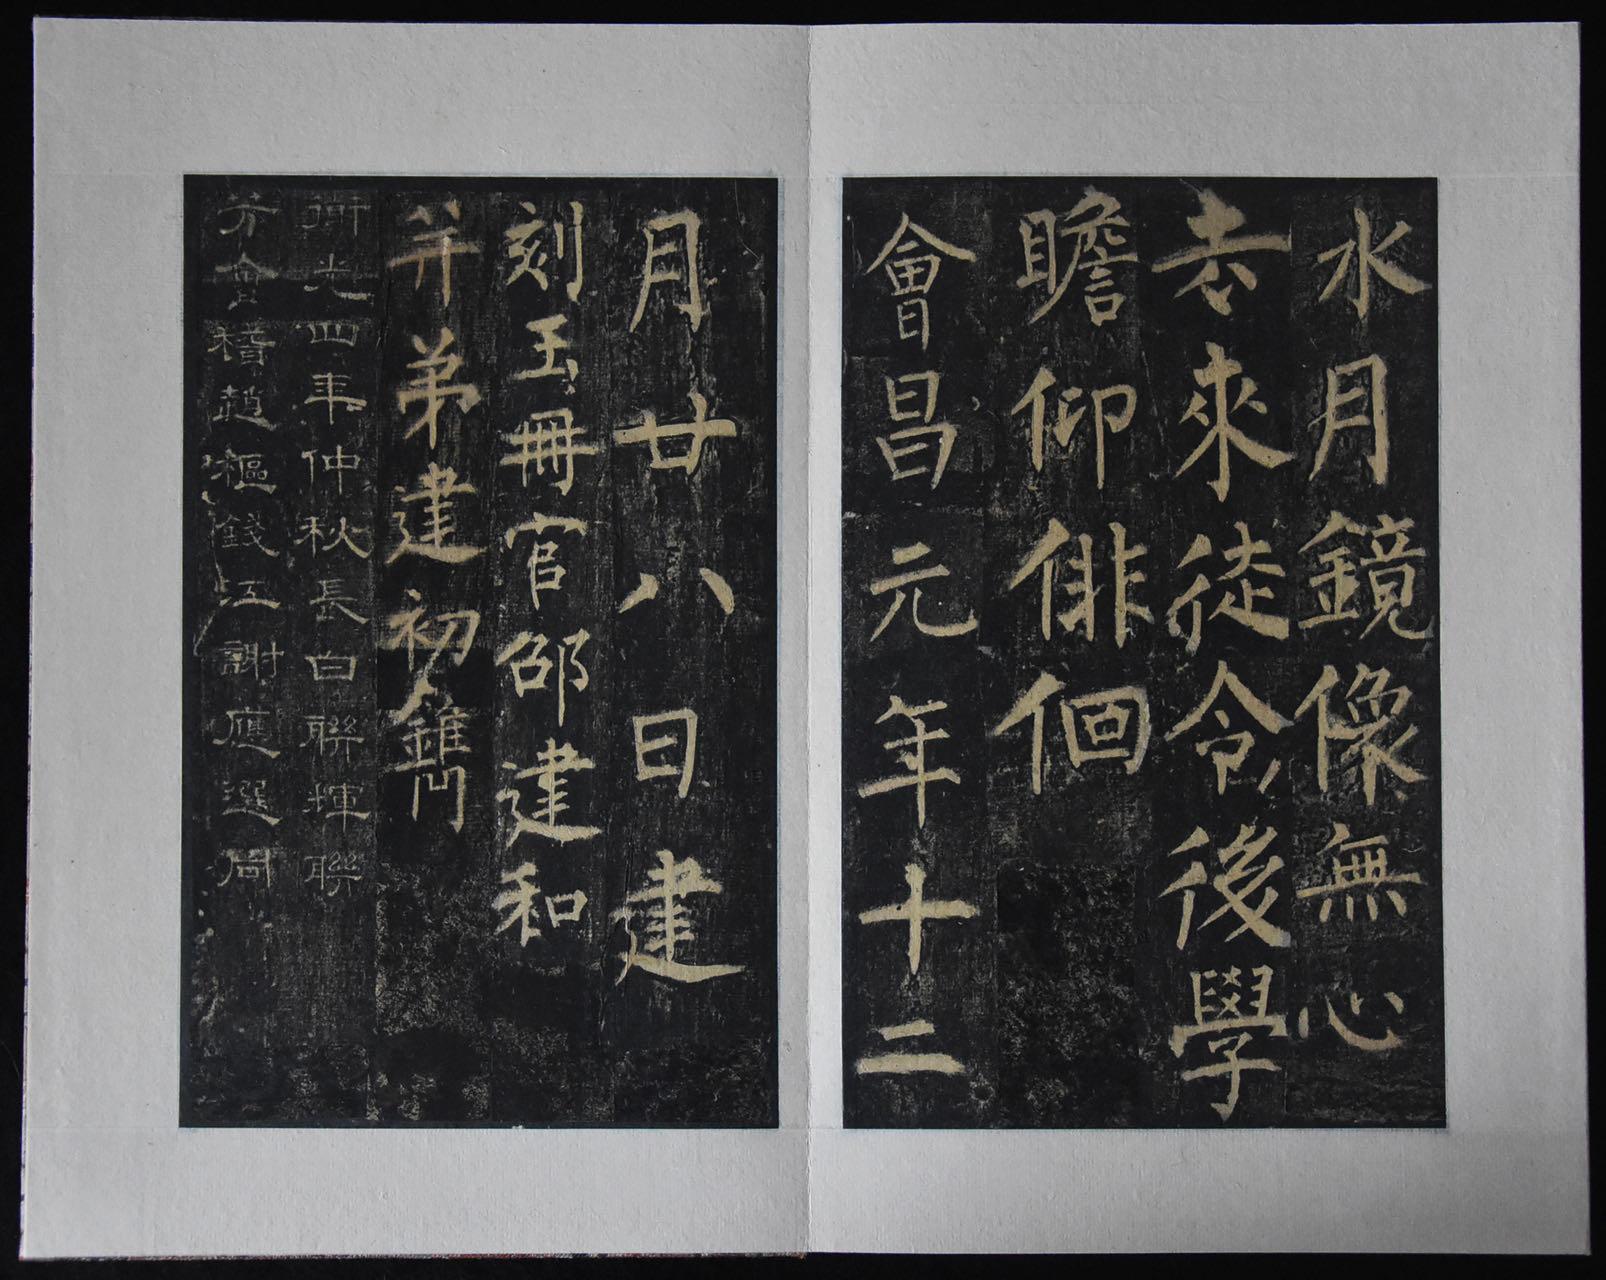 水月鏡像無心
去來徒令後學
瞻仰俳佪
會昌元年十二
月廿八日建
刻玉冊官邵建和
并弟建初鐫
光四年仲秋長白聯輝聯
芳會稽趙樞錢江謝應選同